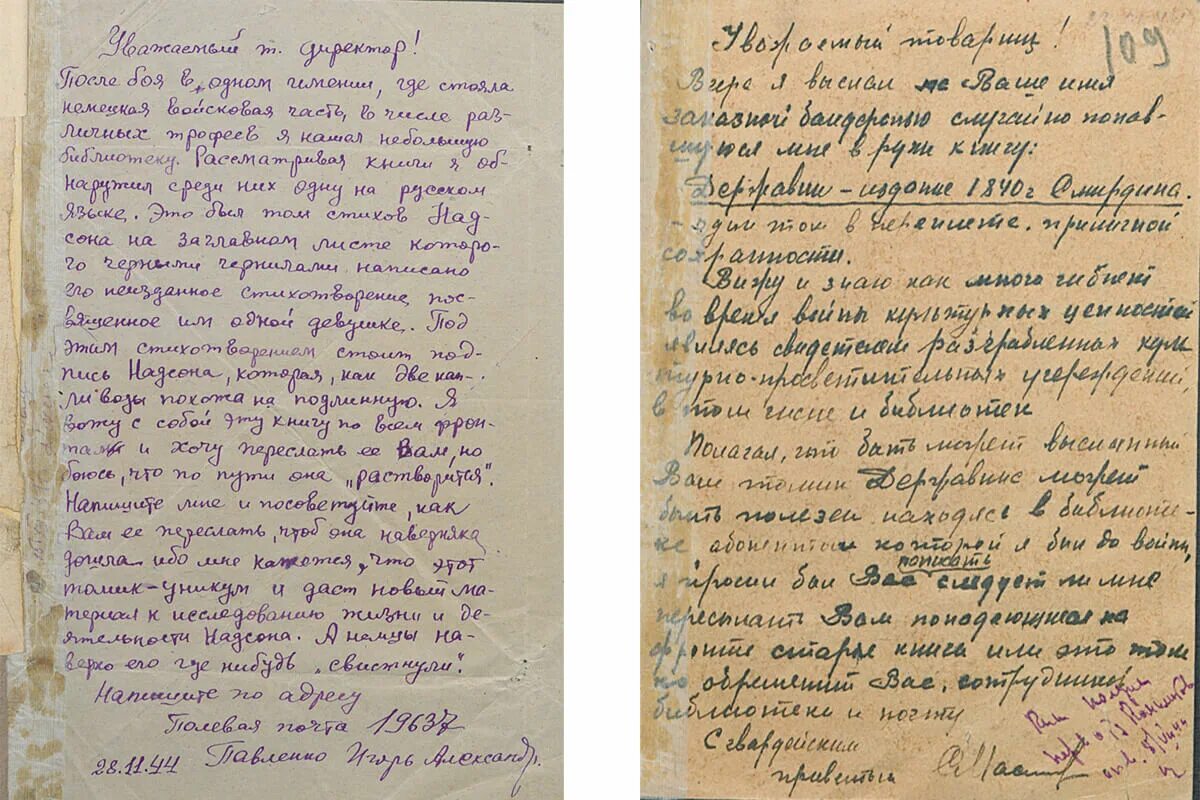 Уважаемый т. директор!
После боя в одном имении, где стояла
немецкая войсковая часть, в числе раз-
личных трофеев я нашел небольшую
библиотеку. Рассматривая книги я об-
наружил среди них одну на русском
языке. Это был том стихов Над-
сона на заглавном листе которо-
го черными чернилами написано
его неизданное стихотворение, пос-
вященное им одной девушке. Под
этим стихотворением стоит под-
пись Надсона, которая, как две кап-
ли воды похожа на подлинную. Я
вожу с собой эту книгу по всем фрон-
там и хочу переслать ее Вам, но
боюсь, что по пути она „растворится".
Напишите мне и посоветуйте, как
Вам ее переслать, чтоб она наверняка
дошла ибо мне кажется, что этот
томик-уникум и даст новый ма-
териал к исследованию жизни и де-
ятельности Надсона. А немцы на-
верно его где нибудь „свистнули".
Напишите по адресу
Полевая почта 19637
28.11.44 Павленко Игорь Александр.
109
Уважаемый товарищ!
Вчера я выслал на Ваше имя
заказной бандеролью случайно попав-
шуюся мне в руки книгу:
Державин – издание 1840 г Смирдина.
– один том в переплете. приличной
сохранности.
Вижу и знаю как много гибнет
во время войны культурных ценностей
являясь свидетелем разграбленных куль
турно-просветительных учреждений,
в том числе и библиотек
Полагая, что быть может высланный
Вам томик Державина может
быть полезен находясь в библиоте-
ке абонентом которой я был до войны,
я просил бы Вас написать следует ли мне
пересылать Вам попадающиеся на
фронте старые книги или это толь
ко обременит Вас, сотрудников
библиотеки и почту
С гвардейским
приветом